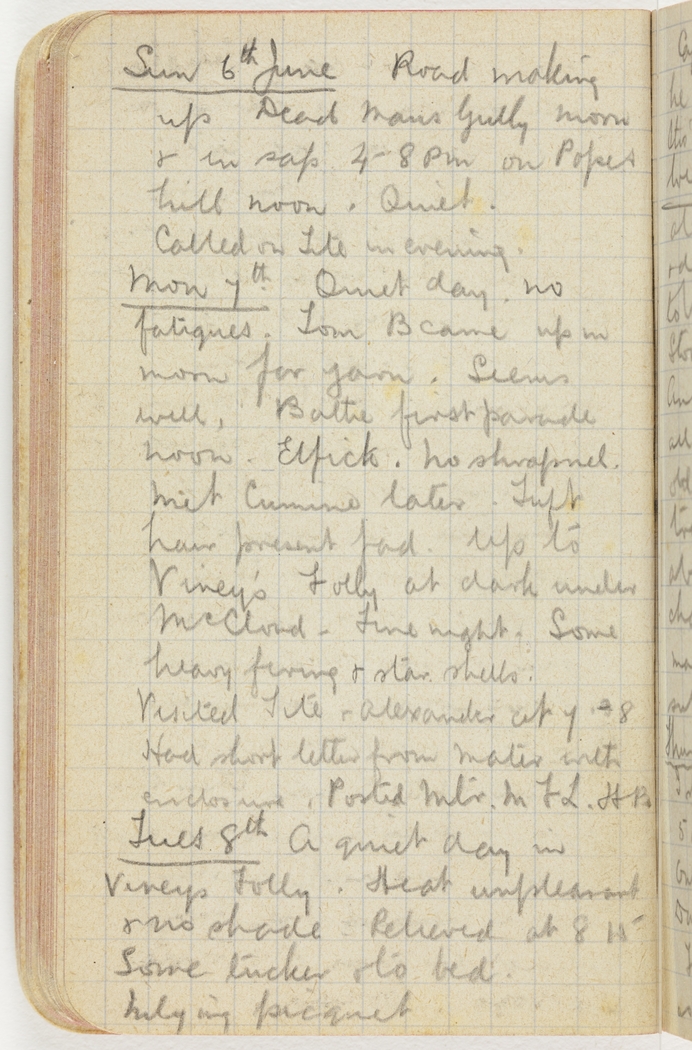 Sun 6th June Road making
up Dead Mans Gully morn
& in sap 4-8 Pm on Popes
hill noon. Quiet.
Called on Tite in evening.
Mon 7th Quiet day. no
fatigues. Tom B came up in
morn for yarn. Seems
well, Battn first parade
noon - Elfick. No shrapnel.
Met Cumine later. Tuft
hair present fad. Up to
Viney's Folly at dark under
McCloud - Fine night. Some
heavy firing & star shells.
Visited Tite - Alexander at 7-8
Had short letter from Mater with
enclosure. Posted Mtr. M F L. H B
Tues 8th A quiet day in
Vineys Folly. Heat unpleasant
& no shade Relieved at 8 15
Some tucker & to bed.
Inlying picquet